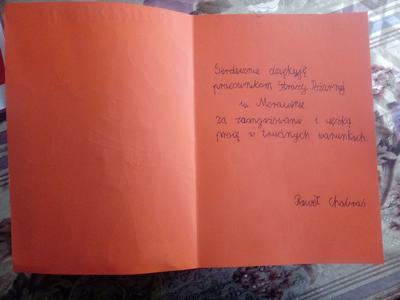 Serdecznie dziękuję
pracownikom Straży Pożarnej
w Morawinie
za zaangażowanie i ciężką
pracę w trudnych warunkach.
Paweł